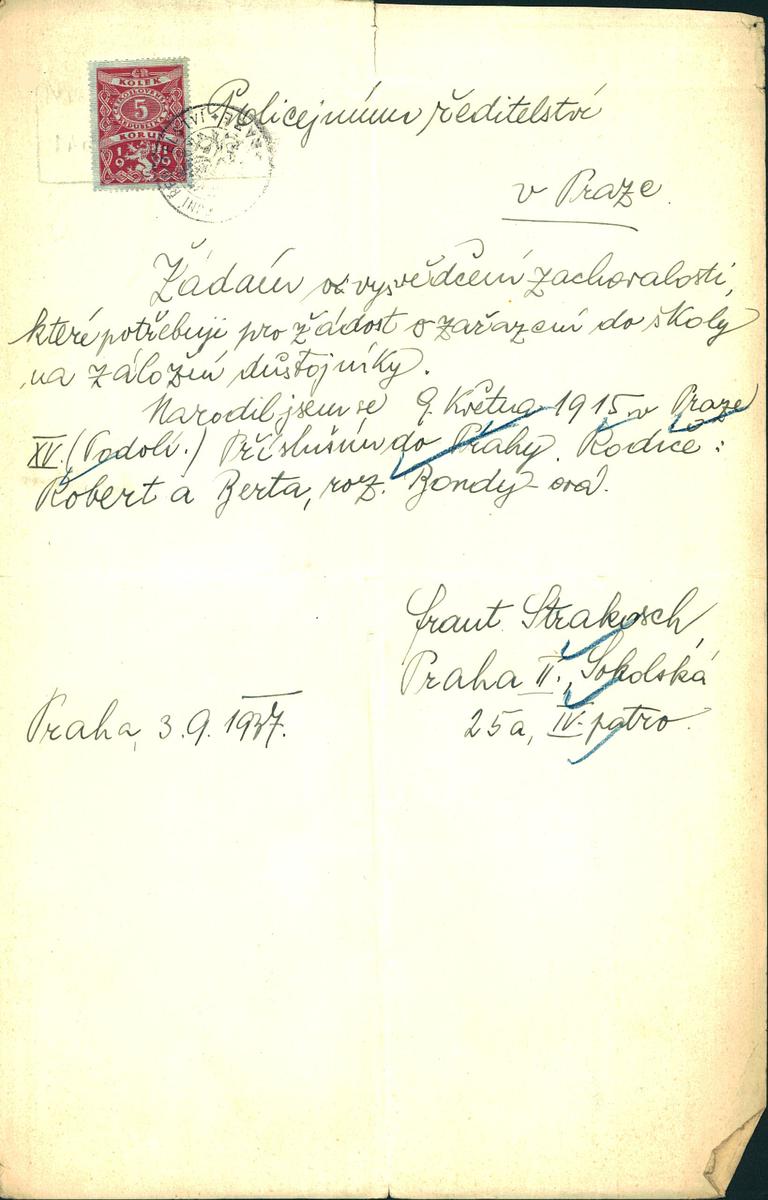 ČR
KOLEK
ČESKOSLOVENSKÁ
5
REPUBLIKA
KORUN
19
Policejnímu ředitelství
v Praze.
Žádám o vysvědčení zachovalosti,
které potřebuji pro žádost o zařazení do školy
na záložní důstojníky.
Narodil jsem se 9. května 1915 v Praze
XV. (Podolí.) Přísluším do Prahy. Rodiče:
Robert a Berta, roz. Bondy-ová.
Frant. Strakosch,
Praha II., Sokolská
25a, IV. patro.
Praha, 3. 9. 1937.